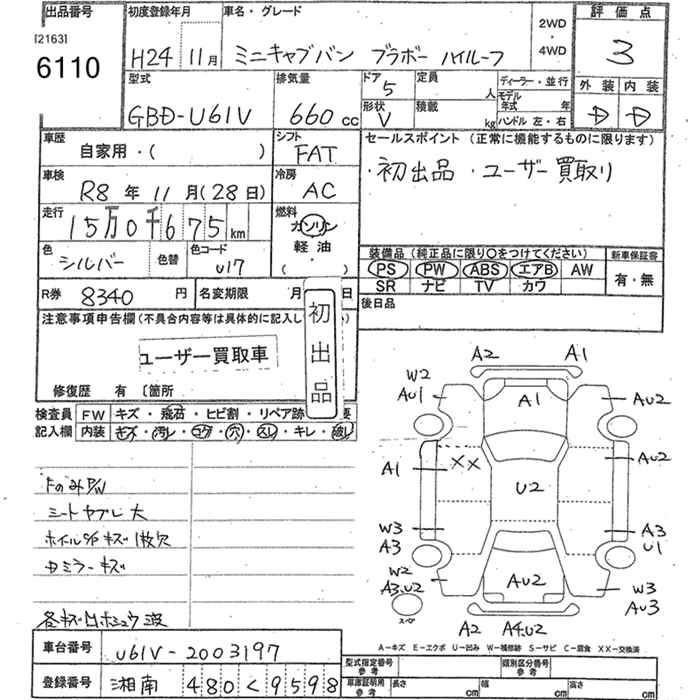 出品番号 初度登録年月 車名・グレード 2WD・4WD 評価点
[2163]
6110 H24 11月 ミニキャブバン ブラボー ハイルーフ 3
型式 排気量 ドア 5 定員 人 ディーラー・並行 外装 内装
モデル年式 年
GBD-U61V 660cc 形状 V 積載 kg ハンドル 左・右 D D
車歴 シフト セールスポイント (正常に機能するものに限ります)
自家用・( ) FAT
車検 冷房 ・初出品 ・ユーザー買取り
R8年 11月(28日) AC
走行 燃料
15万0千675km ガソリン
軽油
色 色替 色コード ( ) 装備品(純正品に限り○をつけてください) 新車保証書
シルバー U17 PS PW ABS エアB AW 有・無
SR ナビ TV カワ
R券 8340円 名変期限 月 日 後日品
初出品
注意事項申告欄(不具合内容等は具体的に記入し
ユーザー買取車
修復歴 有 〔箇所
検査員 FW キズ・飛石・ヒビ割・リペア跡 要
記入欄 内装 キズ・汚レ・コゲ・穴・スレ・キレ・破レ
FのみP/W
シートヤブレ大
ホイルCAPキズ1枚欠
Dミラーキズ
A2 A1
W2
AU1 A1 AU2
A1 XX U2 AU2
W3 A3
A3 U1
W2
A3.U2 AU2 W3
AU3
スペア
A2 A4.U2
A-キズ E-エクボ U-凹み W-補修跡 S-サビ C-腐食 XX-交換済
車台番号 U61V-2003197
型式指定番号 参考 類別区分番号 参考
登録番号 湘南 480 く 9598
車庫証明用 参考 長さ cm 幅 cm 高さ cm